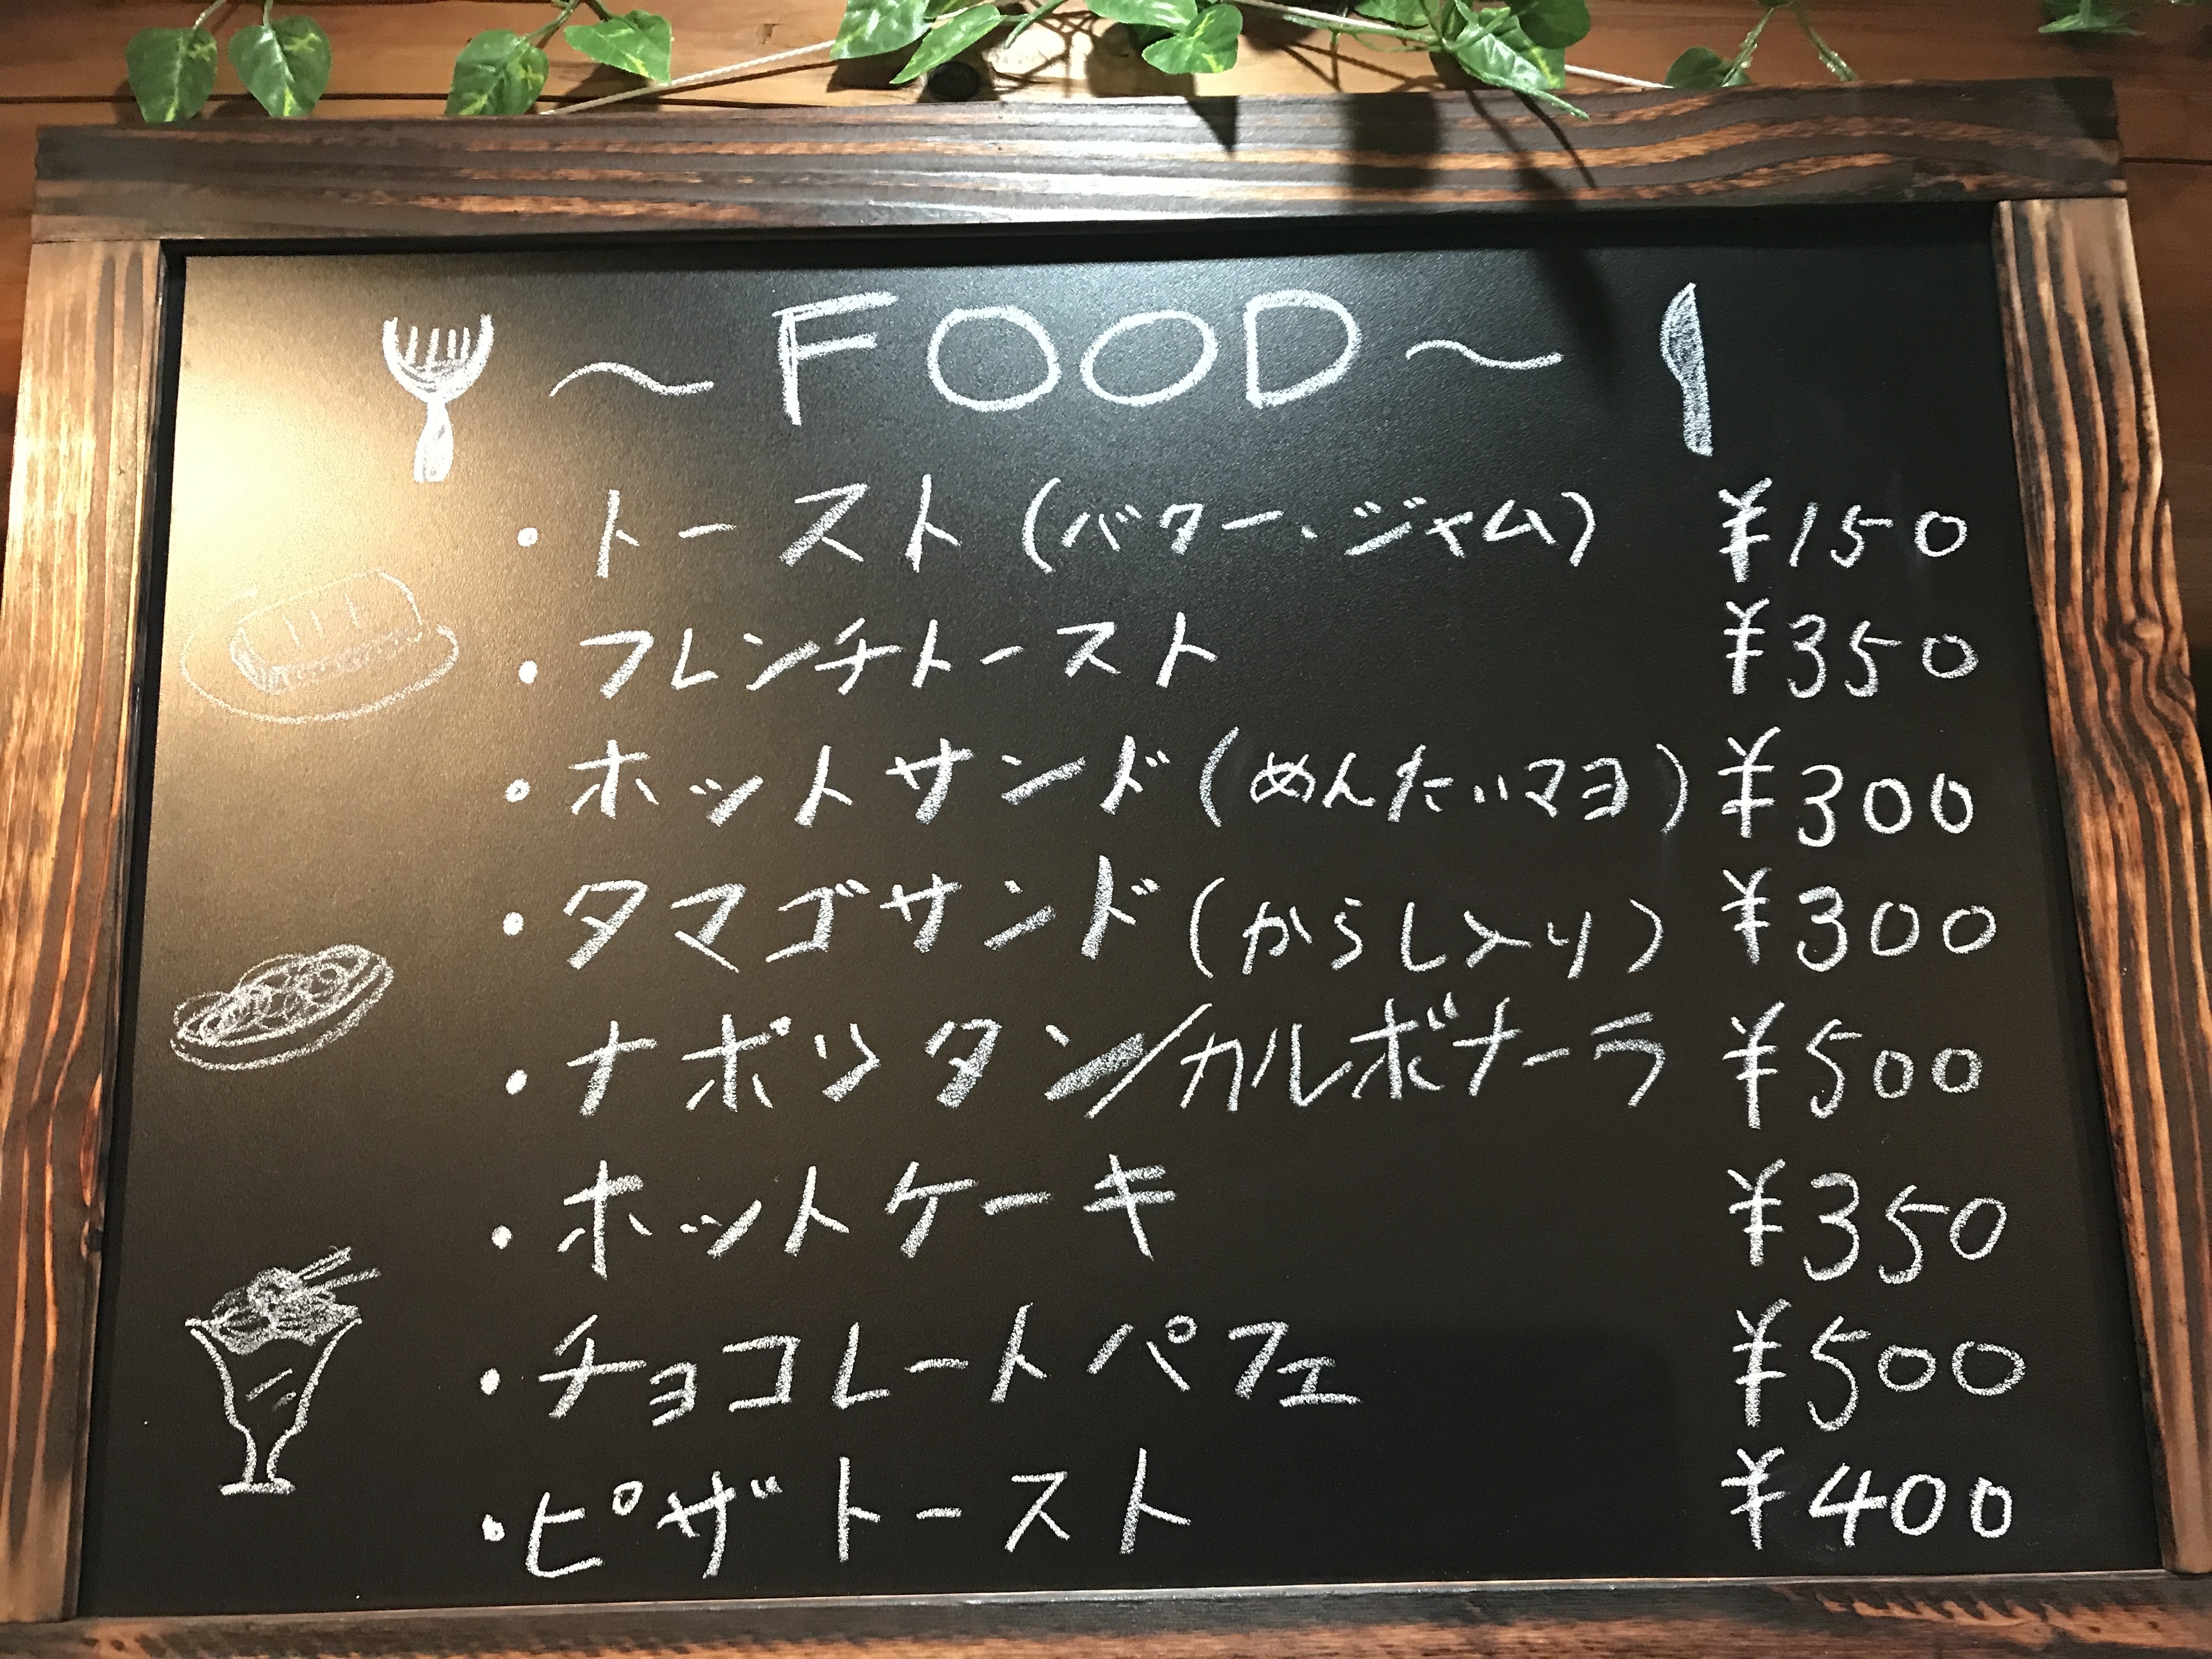 ~FOOD~
・トースト(バター・ジャム) ¥150
・フレンチトースト ¥350
・ホットサンド(めんたいマヨ) ¥300
・タマゴサンド(からし入り) ¥300
・ナポリタン/カルボナーラ ¥500
・ホットケーキ ¥350
・チョコレートパフェ ¥500
・ピザトースト ¥400